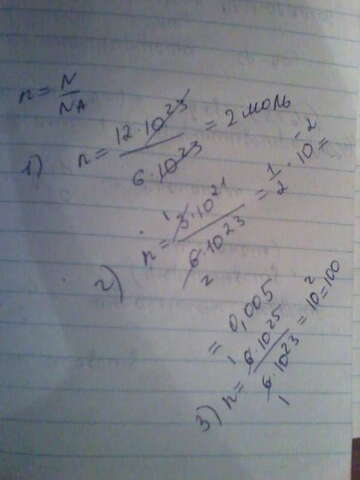 n = N/N_A
1) n = 12·10²³/6·10²³ = 2 моль
2) n = 3·10²¹/6·10²³ = 1/2 · 10⁻² =
= 0,005
3) n = 6·10²⁵/6·10²³ = 10² = 100